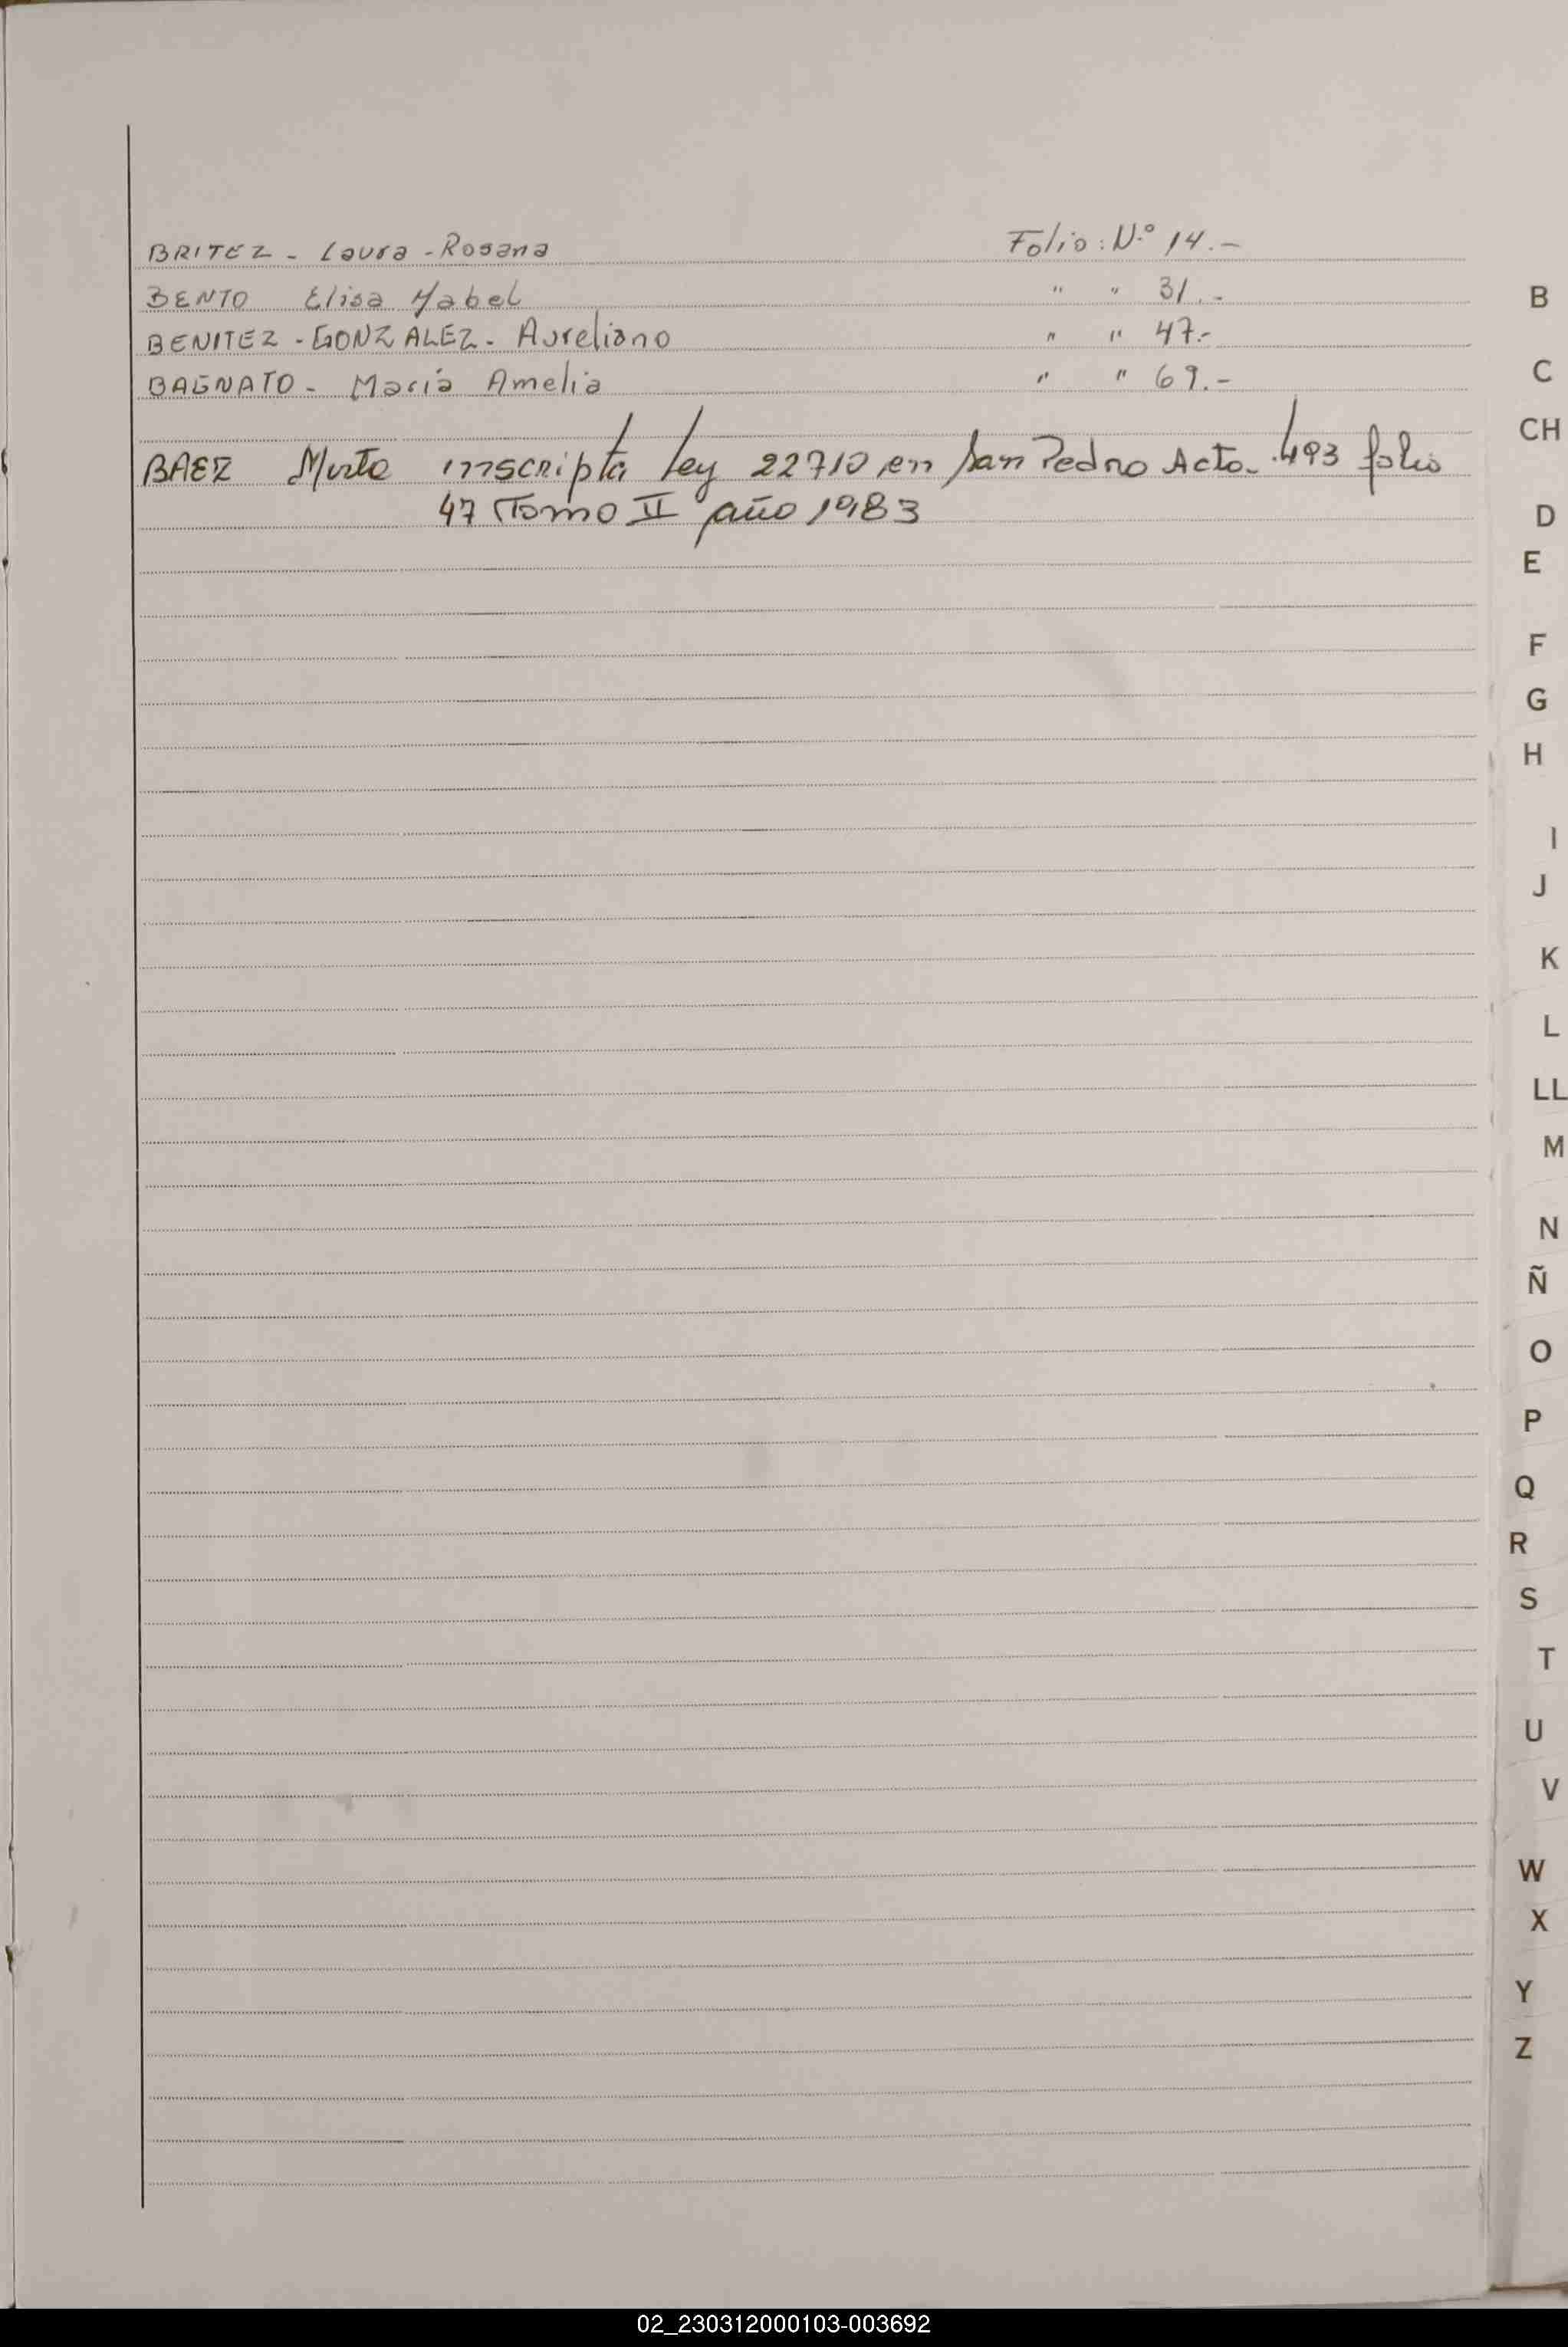 BRITEZ - Laura - Rosana Folio: N.º 14.-
BENTO Elisa Mabel " " 31.-
BENITEZ - GONZALEZ - Aureliano " " 47.-
BAGNATO - María Amelia " " 69.-
BAEZ Mirta inscripta Ley 22710 en San Pedro Acta 493 folio
47 Tomo II año 1983
B
C
CH
D
E
F
G
H
I
J
K
L
LL
M
N
Ñ
O
P
Q
R
S
T
U
V
W
X
Y
Z
02_230312000103-003692